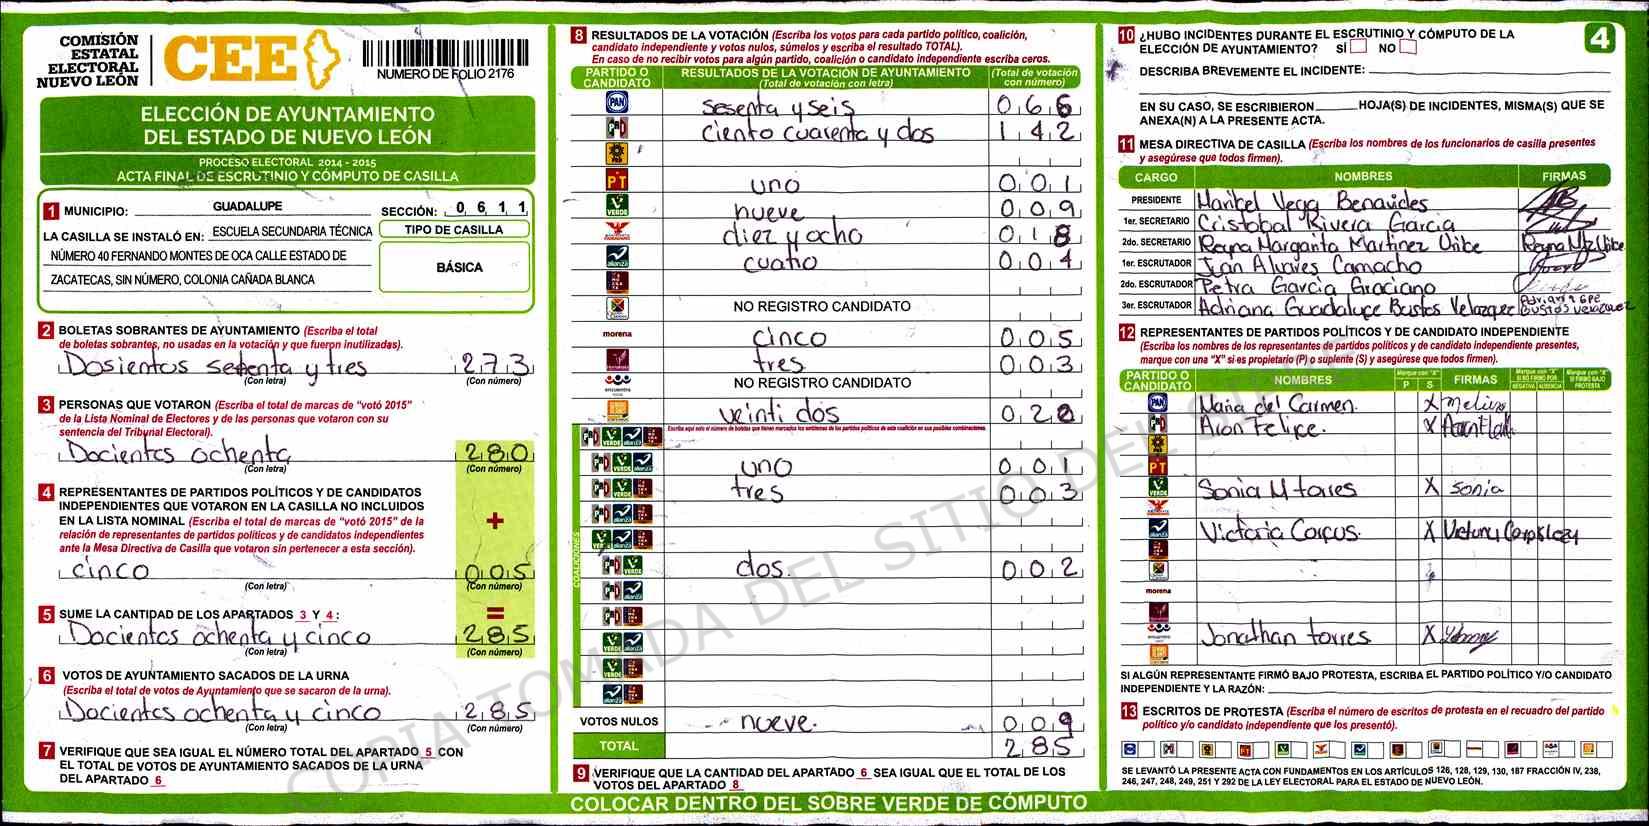 COMISIÓN
ESTATAL
ELECTORAL
NUEVO LEÓN
CEE
NUMERO DE FOLIO 2176
ELECCIÓN DE AYUNTAMIENTO
DEL ESTADO DE NUEVO LEÓN
PROCESO ELECTORAL 2014 - 2015
ACTA FINAL DE ESCRUTINIO Y CÓMPUTO DE CASILLA
1 MUNICIPIO: GUADALUPE SECCIÓN: 0 6 1 1
LA CASILLA SE INSTALÓ EN: ESCUELA SECUNDARIA TÉCNICA
NÚMERO 40 FERNANDO MONTES DE OCA CALLE ESTADO DE
ZACATECAS, SIN NÚMERO, COLONIA CAÑADA BLANCA
TIPO DE CASILLA
BÁSICA
2 BOLETAS SOBRANTES DE AYUNTAMIENTO (Escriba el total
de boletas sobrantes, no usadas en la votación y que fueron inutilizadas).
Dosientos setenta y tres 2 7 3
(Con letra) (Con número)
3 PERSONAS QUE VOTARON (Escriba el total de marcas de “votó 2015”
de la Lista Nominal de Electores y de las personas que votaron con su
sentencia del Tribunal Electoral).
Docientos ochenta 2 8 0
(Con letra) (Con número)
4 REPRESENTANTES DE PARTIDOS POLÍTICOS Y DE CANDIDATOS
INDEPENDIENTES QUE VOTARON EN LA CASILLA NO INCLUIDOS
EN LA LISTA NOMINAL (Escriba el total de marcas de “votó 2015” de la
relación de representantes de partidos políticos y de candidatos independientes
ante la Mesa Directiva de Casilla que votaron sin pertenecer a esta sección).
+
cinco 0 0 5
(Con letra) (Con número)
5 SUME LA CANTIDAD DE LOS APARTADOS 3 Y 4 : =
Docientos ochenta y cinco 2 8 5
(Con letra) (Con número)
6 VOTOS DE AYUNTAMIENTO SACADOS DE LA URNA
(Escriba el total de votos de Ayuntamiento que se sacaron de la urna).
Docientos ochenta y cinco 2 8 5
(Con letra) (Con número)
7 VERIFIQUE QUE SEA IGUAL EL NÚMERO TOTAL DEL APARTADO 5 CON
EL TOTAL DE VOTOS DE AYUNTAMIENTO SACADOS DE LA URNA
DEL APARTADO 6
8 RESULTADOS DE LA VOTACIÓN (Escriba los votos para cada partido político, coalición,
candidato independiente y votos nulos, súmelos y escriba el resultado TOTAL).
En caso de no recibir votos para algún partido, coalición o candidato independiente escriba ceros.
PARTIDO O CANDIDATO RESULTADOS DE LA VOTACIÓN DE AYUNTAMIENTO (Total de votación con letra) (Total de votación con número)
PAN sesenta y seis 0 6 6
PRI ciento cuarenta y dos 1 4 2
PRD
PT uno 0 0 1
VERDE nueve 0 0 9
diez y ocho 0 1 8
alianza cuatro 0 0 4
NO REGISTRO CANDIDATO
morena cinco 0 0 5
tres 0 0 3
encuentro NO REGISTRO CANDIDATO
veinti dos 0 2 2
Escriba aquí solo el número de boletas que tienen marcados los emblemas de los partidos políticos de esta coalición en sus posibles combinaciones.
COALICIONES
uno 0 0 1
tres 0 0 3
dos. 0 0 2
VOTOS NULOS nueve. 0 0 9
TOTAL 2 8 5
9 VERIFIQUE QUE LA CANTIDAD DEL APARTADO 6 SEA IGUAL QUE EL TOTAL DE LOS
VOTOS DEL APARTADO 8
COLOCAR DENTRO DEL SOBRE VERDE DE CÓMPUTO
10 ¿HUBO INCIDENTES DURANTE EL ESCRUTINIO Y CÓMPUTO DE LA
ELECCIÓN DE AYUNTAMIENTO? SÍ NO
4
DESCRIBA BREVEMENTE EL INCIDENTE:
EN SU CASO, SE ESCRIBIERON HOJA(S) DE INCIDENTES, MISMA(S) QUE SE
ANEXA(N) A LA PRESENTE ACTA.
11 MESA DIRECTIVA DE CASILLA (Escriba los nombres de los funcionarios de casilla presentes
y asegúrese que todos firmen).
CARGO NOMBRES FIRMAS
PRESIDENTE Maribel Vega Benavides
1er. SECRETARIO Cristobal Rivera Garcia
2do. SECRETARIO Reyna Margarita Martinez Uribe Reyna Mz Uribe
1er. ESCRUTADOR Juan Alvares Camacho
2do. ESCRUTADOR Petra Garcia Graciano
3er. ESCRUTADOR Adriana Guadalupe Bustos Velazquez Adriana Gpe Bustos Velazquez
12 REPRESENTANTES DE PARTIDOS POLÍTICOS Y DE CANDIDATO INDEPENDIENTE
(Escriba los nombres de los representantes de partidos políticos y de candidato independiente presentes,
marque con una “X” si es propietario (P) o suplente (S) y asegúrese que todos firmen).
PARTIDO O CANDIDATO NOMBRES Marque con “X” P S FIRMAS Marque con “X” SI NO FIRMÓ POR NEGATIVA AUSENCIA Marque con “X” SI FIRMÓ BAJO PROTESTA
PAN Maria del Carmen. X
Aron Felice. X
PRD
PT
VERDE Sonia M torres X Sonia
alianza Victoria Corpus. X
morena
encuentro Jonathan torres X
SI ALGÚN REPRESENTANTE FIRMÓ BAJO PROTESTA, ESCRIBA EL PARTIDO POLÍTICO Y/O CANDIDATO
INDEPENDIENTE Y LA RAZÓN:
13 ESCRITOS DE PROTESTA (Escriba el número de escritos de protesta en el recuadro del partido
político y/o candidato independiente que los presentó).
SE LEVANTÓ LA PRESENTE ACTA CON FUNDAMENTOS EN LOS ARTÍCULOS 126, 128, 129, 130, 187 FRACCIÓN IV, 238,
246, 247, 248, 249, 251 Y 292 DE LA LEY ELECTORAL PARA EL ESTADO DE NUEVO LEÓN.
COPIA TOMADA DEL SITIO DEL